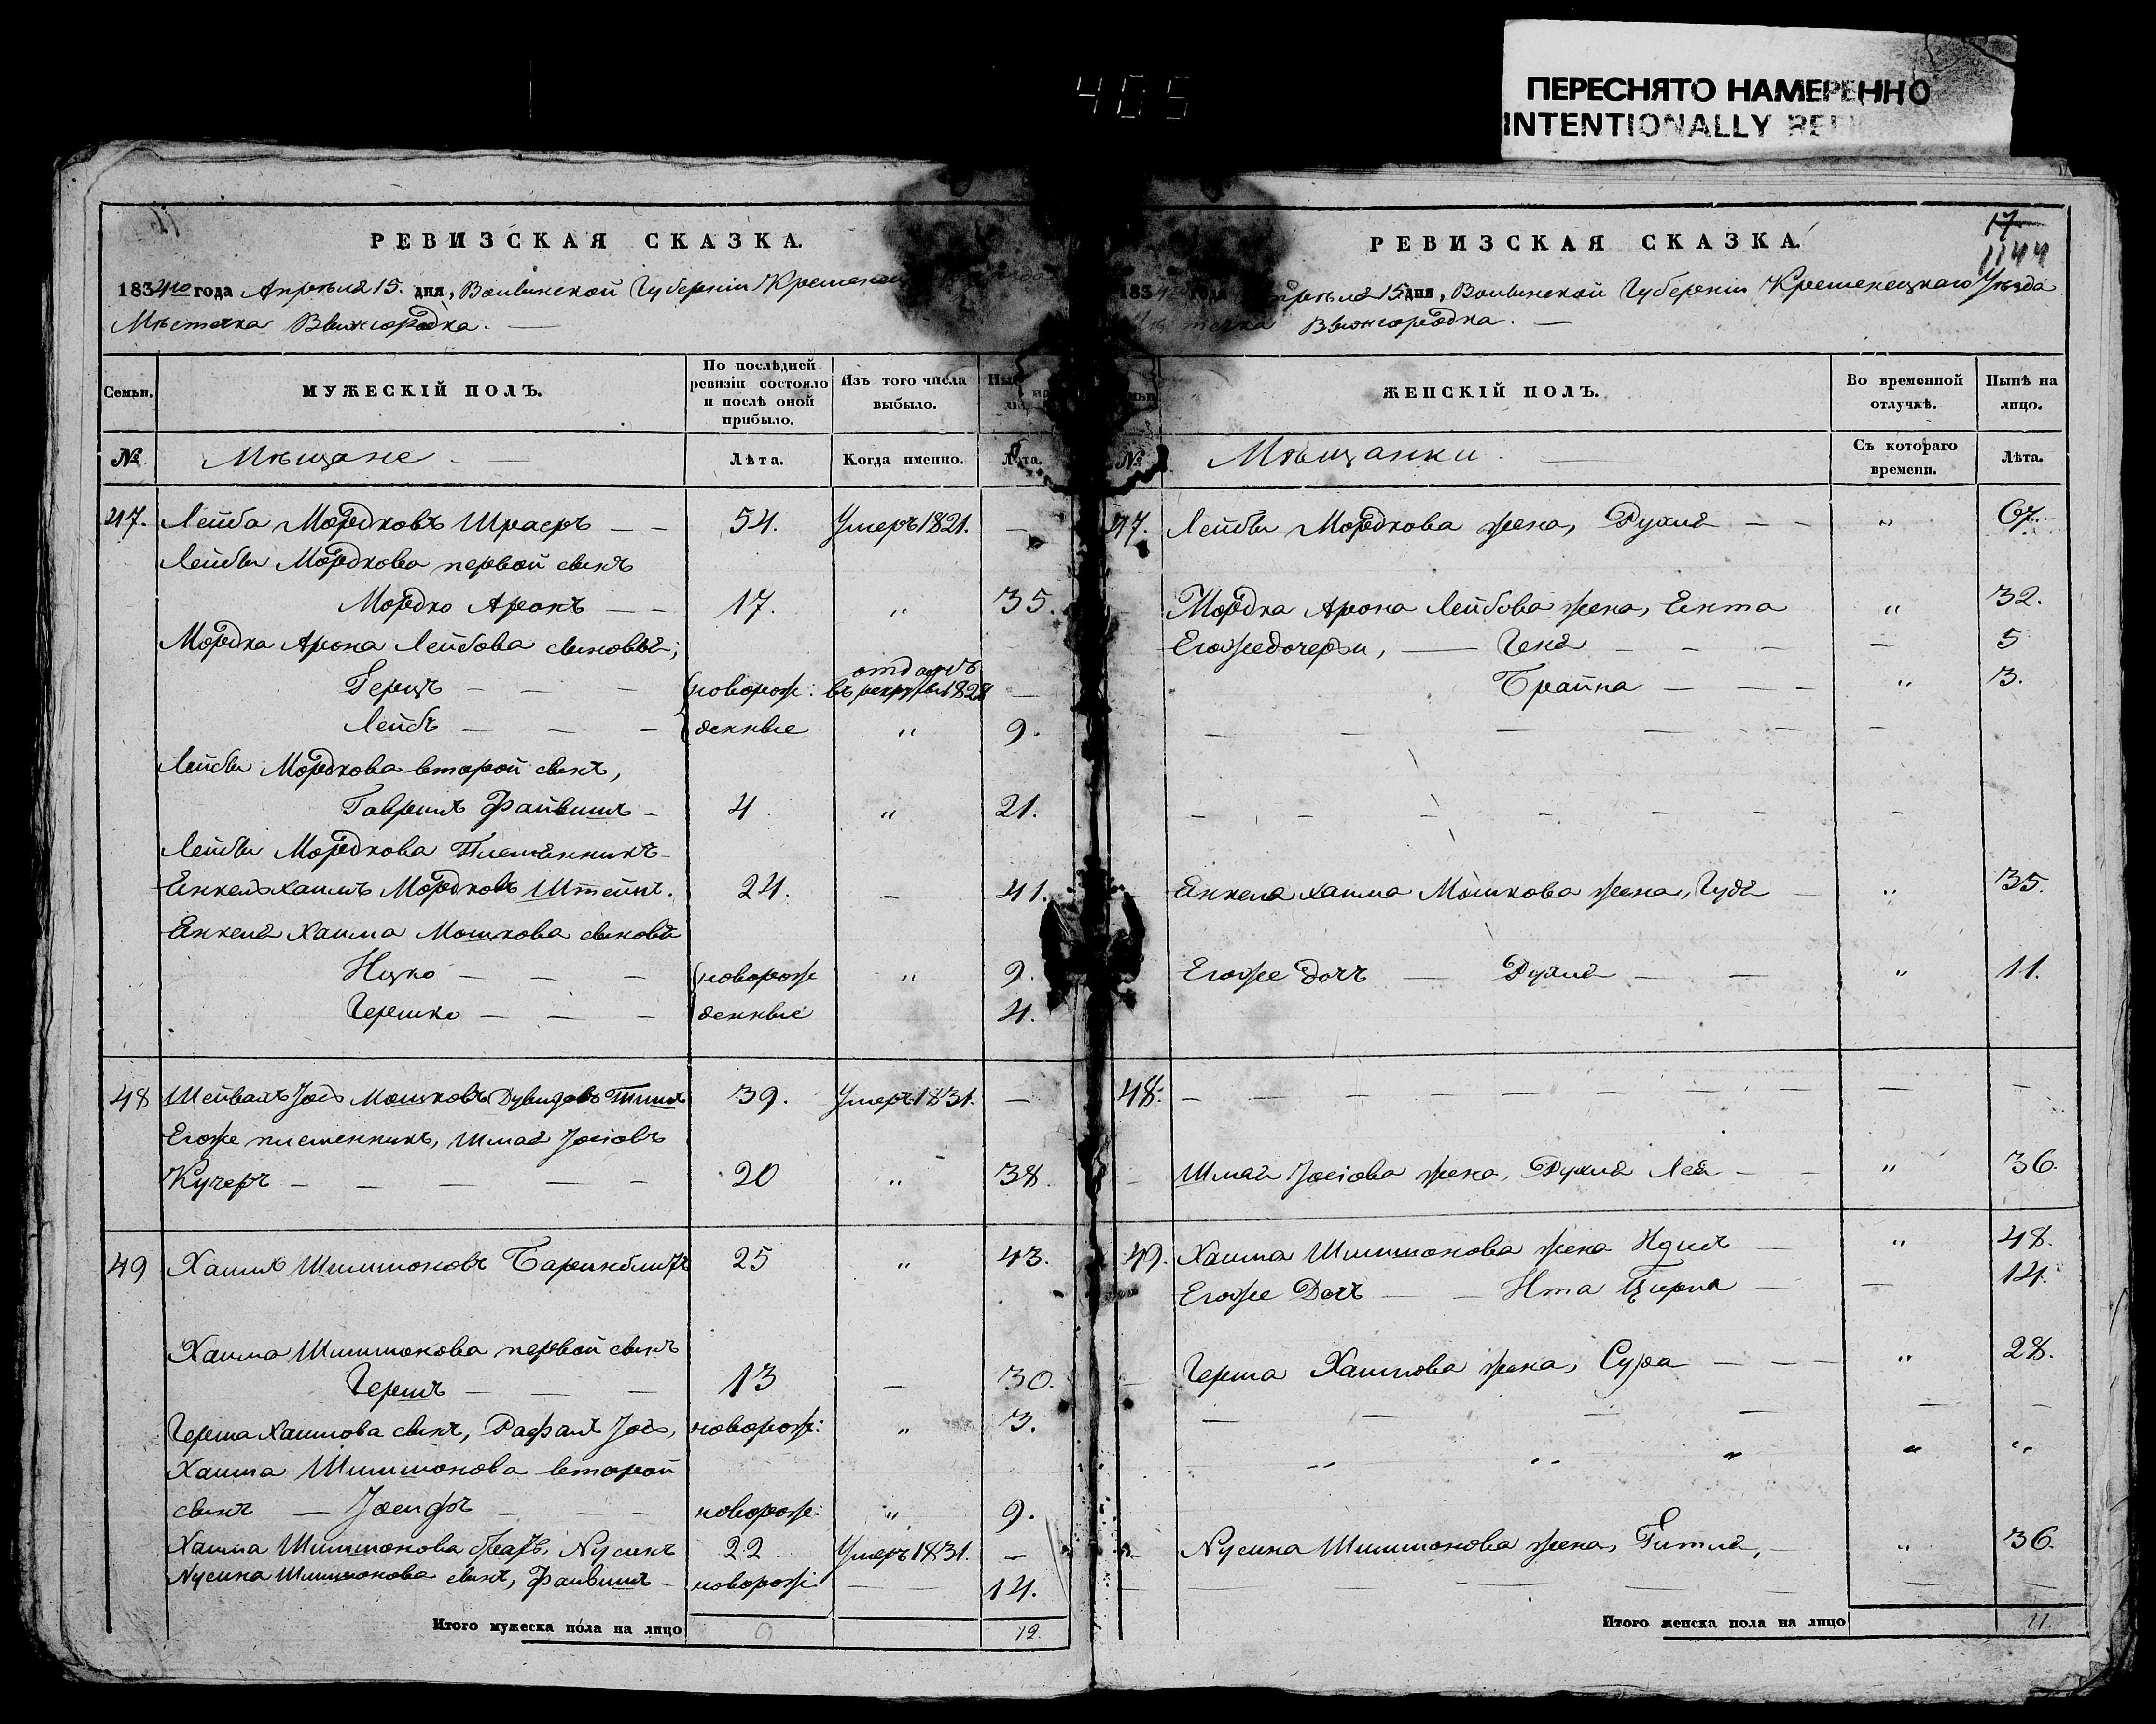 405
ПЕРЕСНЯТО НАМЕРЕННО
INTENTIONALLY
РЕВИЗСКАЯ СКАЗКА.
1834го года Апрѣля 15. дня, Волынской Губернии
Мѣстечка Вышгородка. —
Семьи. МУЖЕСКІЙ ПОЛЪ. По послѣдней ревизіи состояло и послѣ оной прибыло. Изъ того числа выбыло.
№ Мѣщане — Лѣта. Когда именно. Лѣта.
47. Лейба Мордковъ Шраеръ — — 54. Умеръ 1821. —
Лейбы Мордкова первой сынъ
Мордко Аронъ — — 17. " 35.
Мордка Арона Лейбова сыновья;
Герцъ — — — новорож: отданъ въ рекруты 1828 —
Лейбъ — — — денные " 9.
Лейбы Мордкова второй сынъ,
Гаврилъ Файвишъ — 4 " 21.
Лейбы Мордкова Племянникъ
Енкель Хаимъ Мордковъ Штейнъ. 24. — 41.
Енкеля Хаима Мошкова сыновья
Ицко — — — новорож " 9.
Гершко — — — денные 4.
48 Шейвахъ Іось Мошковъ Дувидовъ 39. Умеръ 1831. —
Егоже племенникъ, Шмая Іосіовъ
Кучеръ — — — — — 20 " 38.
49 Хаимъ Шимшоновъ 25 " 43.
Хаима Шимшонова первой сынъ
Гершъ — — — 13 — 30.
Герша Хаимова сынъ, Рафаилъ Іось, новорож: " 3.
Хаима Шимшонова второй
сынъ — Іосифъ — — — новорож: " 9.
Хаима Шимшонова братъ, Нусинъ 22 Умеръ 1831. —
Нусина Шимшонова сынъ, Файвишъ — новорож: — 14.
Итого мужеска пола на лицо 9 12.
17
1144
РЕВИЗСКАЯ СКАЗКА.
183 года Апрѣля 15 дня, Волынской Губернии Кременецкаго Уѣзда
Мѣстечка Вышгородка. —
ЖЕНСКІЙ ПОЛЪ. Во временной отлучкѣ. Нынѣ на лицо.
№ Мѣщанки. — Съ котораго времени. Лѣта.
47. Лейбы Мордкова жена, Рухля — — " 67.
Мордка Арона Лейбова жена, Ента " 32.
Егожедочери, — Геня — — — — 5
Брайна — — — " 3.
— — — — — —
— — — — — — — — —
Енкеля Хаима Мошкова жена, Гудя — " 35.
Егоже дочь — Рухля — — " 11.
48. — — — — — — — — — —
Шмаи Іосіова жена, Рухля Лея — — " 36.
49. Хаима Шимшонова жена Идись — " 48.
Егоже Дочь — — Ита Цирля — — 14.
Герша Хаимова жена, Сура — — — " 28.
— — — — — —
" " " " "
Нусина Шимшонова жена, Гитля, — " 36.
— — — — — —
Итого женска пола на лицо 11.